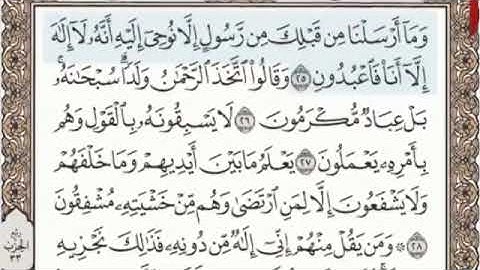 وَمَآ أَرْسَلْنَا مِن قَبْلِكَ مِن رَّسُولٍ إِلَّا نُوحِىٓ إِلَيْهِ أَنَّهُۥ لَآ إِلَٰهَ
إِلَّآ أَنَا۠ فَٱعْبُدُونِ ٢٥ وَقَالُوا۟ ٱتَّخَذَ ٱلرَّحْمَٰنُ وَلَدًا ۗ سُبْحَٰنَهُۥ ۚ
بَلْ عِبَادٌ مُّكْرَمُونَ ٢٦ لَا يَسْبِقُونَهُۥ بِٱلْقَوْلِ وَهُم
بِأَمْرِهِۦ يَعْمَلُونَ ٢٧ يَعْلَمُ مَا بَيْنَ أَيْدِيهِمْ وَمَا خَلْفَهُمْ
وَلَا يَشْفَعُونَ إِلَّا لِمَنِ ٱرْتَضَىٰ وَهُم مِّنْ خَشْيَتِهِۦ مُشْفِقُونَ
٢٨ ۞ وَمَن يَقُلْ مِنْهُمْ إِنِّىٓ إِلَٰهٌ مِّن دُونِهِۦ فَذَٰلِكَ نَجْزِيهِ
ربع
الحزب
٣٣